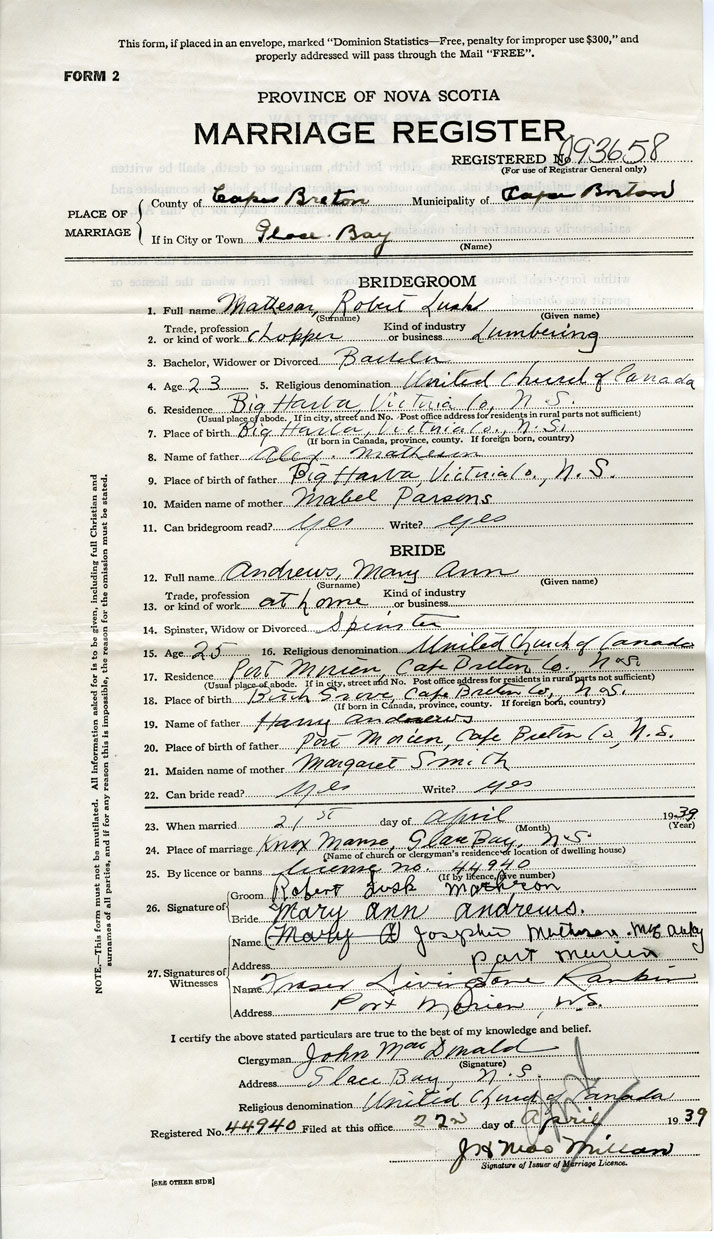 This form, if placed in an envelope, marked "Dominion Statistics—Free, penalty for improper use $300," and
properly addressed will pass through the Mail "FREE".
FORM 2
PROVINCE OF NOVA SCOTIA
MARRIAGE REGISTER
REGISTERED No 093658
(For use of Registrar General only)
PLACE OF MARRIAGE
County of Cape Breton Municipality of Cape Breton
If in City or Town Glace Bay
(Name)
BRIDEGROOM
1. Full name Matheson, Robert Lusk
(Surname) (Given name)
2. Trade, profession or kind of work Chopper Kind of industry or business Lumbering
3. Bachelor, Widower or Divorced Bachelor
4. Age 23 5. Religious denomination United Church of Canada
6. Residence Big Harbor, Victoria Co, N.S.
(Usual place of abode. If in city, street and No. Post office address for residents in rural parts not sufficient)
7. Place of birth Big Harbor, Victoria Co., N.S.
(If born in Canada, province, county. If foreign born, country)
8. Name of father Alex. Matheson
9. Place of birth of father Big Harbor, Victoria Co., N.S.
10. Maiden name of mother Mabel Parsons
11. Can bridegroom read? Yes Write? Yes
BRIDE
12. Full name Andrews, Mary Ann
(Surname) (Given name)
13. Trade, profession or kind of work at home Kind of industry or business
14. Spinster, Widow or Divorced Spinster
15. Age 25 16. Religious denomination United Church of Canada
17. Residence Port Morien, Cape Breton Co. N.S.
(Usual place of abode. If in city, street and No. Post office address for residents in rural parts not sufficient)
18. Place of birth Birch Grove, Cape Breton Co, N.S.
(If born in Canada, province, county. If foreign born, country)
19. Name of father Harry Andrews
20. Place of birth of father Port Morien, Cape Breton Co, N.S.
21. Maiden name of mother Margaret Smith
22. Can bride read? Yes Write? yes
23. When married 21st day of April 1939
(Month) (Year)
24. Place of marriage Knox Manse, Glace Bay, N.S.
(Name of church or clergyman's residence or location of dwelling house)
25. By licence or banns license no. 44940
(If by licence, give number)
26. Signature of
Groom Robert Lusk Matheson
Bride Mary Ann Andrews.
27. Signatures of Witnesses
Name Mary A Josephin Matheson
Address Port Morien
Name Fraser Livingstone Rankin
Address Port Morien, N.S.
I certify the above stated particulars are true to the best of my knowledge and belief.
Clergyman John MacDonald
(Signature)
Address Glace Bay, N.S.
Religious denomination United Church of Canada
Registered No. 44940 Filed at this office 22nd day of April 1939
Signature of Issuer of Marriage Licence.
[SEE OTHER SIDE]
NOTE.—This form must not be mutilated. All information asked for is to be given, including full Christian and
surnames of all parties, and if for any reason this is impossible, the reason for the omission must be stated.